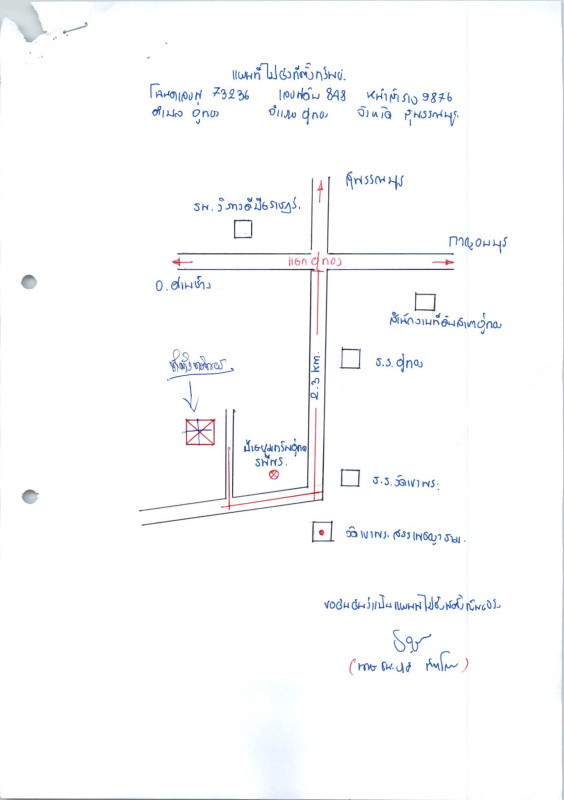 แผนที่ไปยังที่ตั้งทรัพย์.
โฉนดเลขที่ 73236 เลขที่ดิน 848 หน้าสำรวจ 9876
ตำบล อู่ทอง อำเภอ อู่ทอง จังหวัด สุพรรณบุรี
สุพรรณบุรี
รพ.
กาญจนบุรี
แยกอู่ทอง
อ.ด่านช้าง
สำนักงานที่ดินสาขาอู่ทอง
ร.ร.อู่ทอง
2.3 km.
ที่ตั้งทรัพย์
ร.ร.วัดเขาพระ
วัดเขาพระ
ขอรับรองว่าเป็นแผนที่ไปยังที่ตั้งทรัพย์จริง